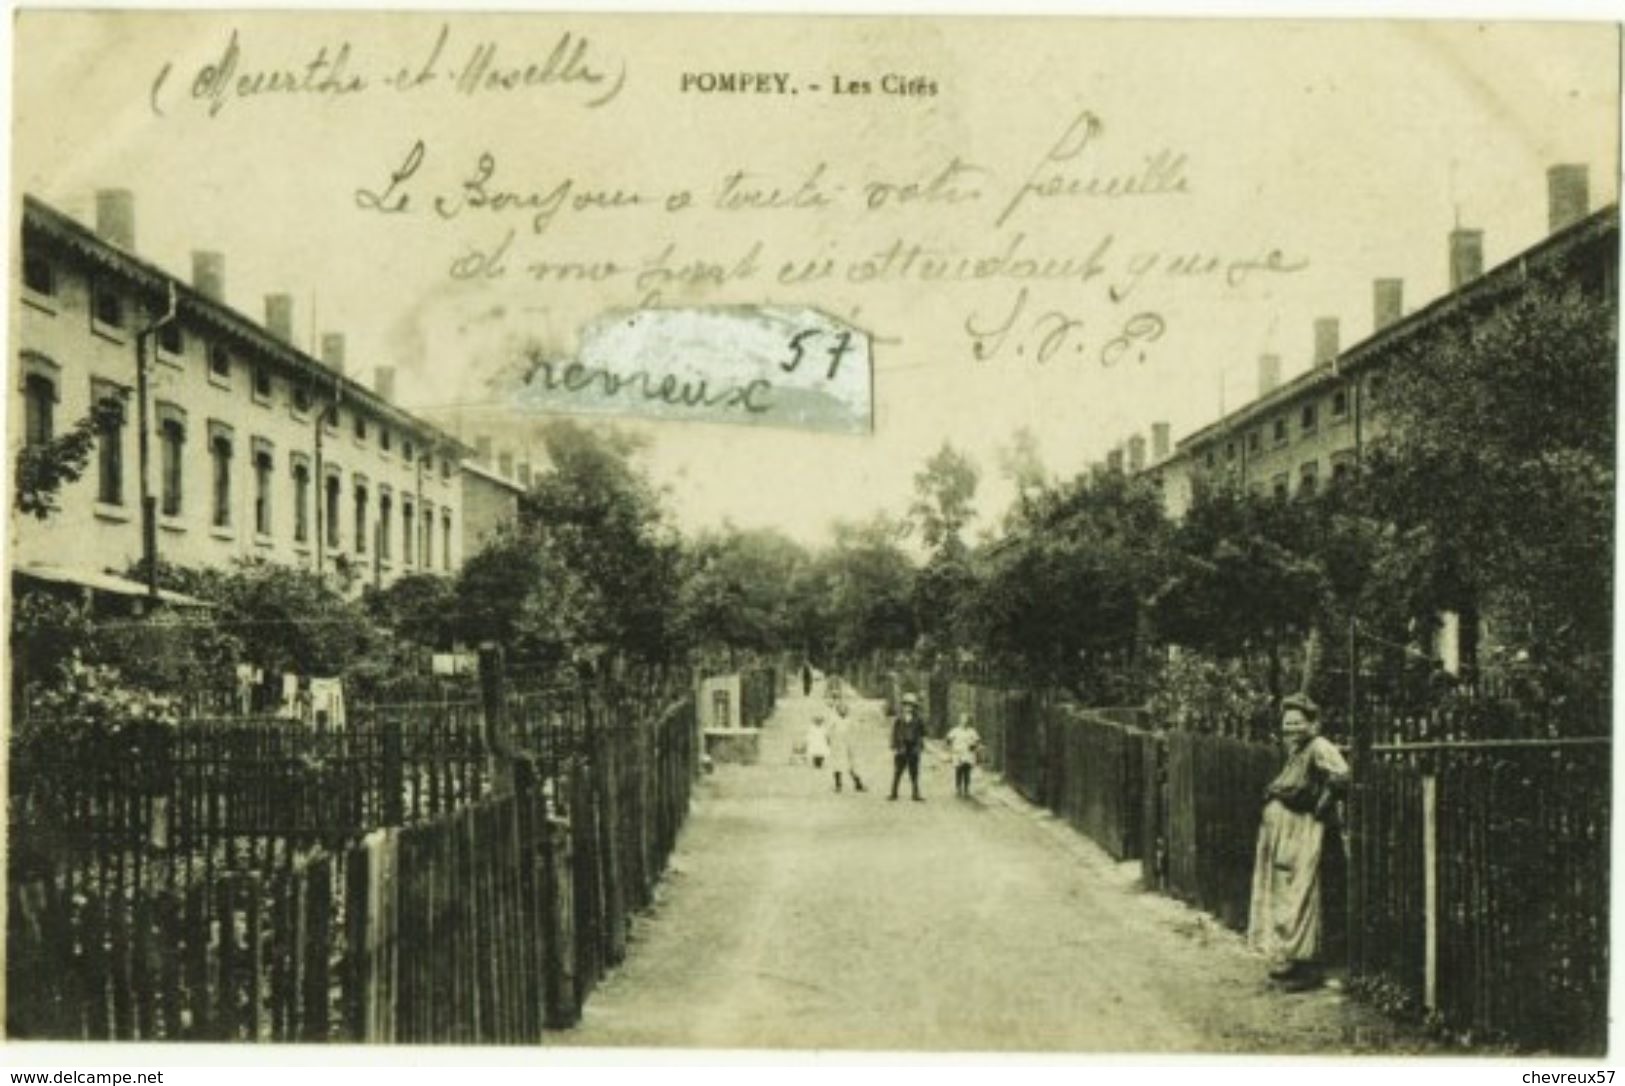 (Meurthe-et-Moselle)
POMPEY. - Les Cités
Le Bonjour a toute votre famille
de ma part en attendant que je
S. V. P.
hevreux 57
www.delcampe.net
chevreux57